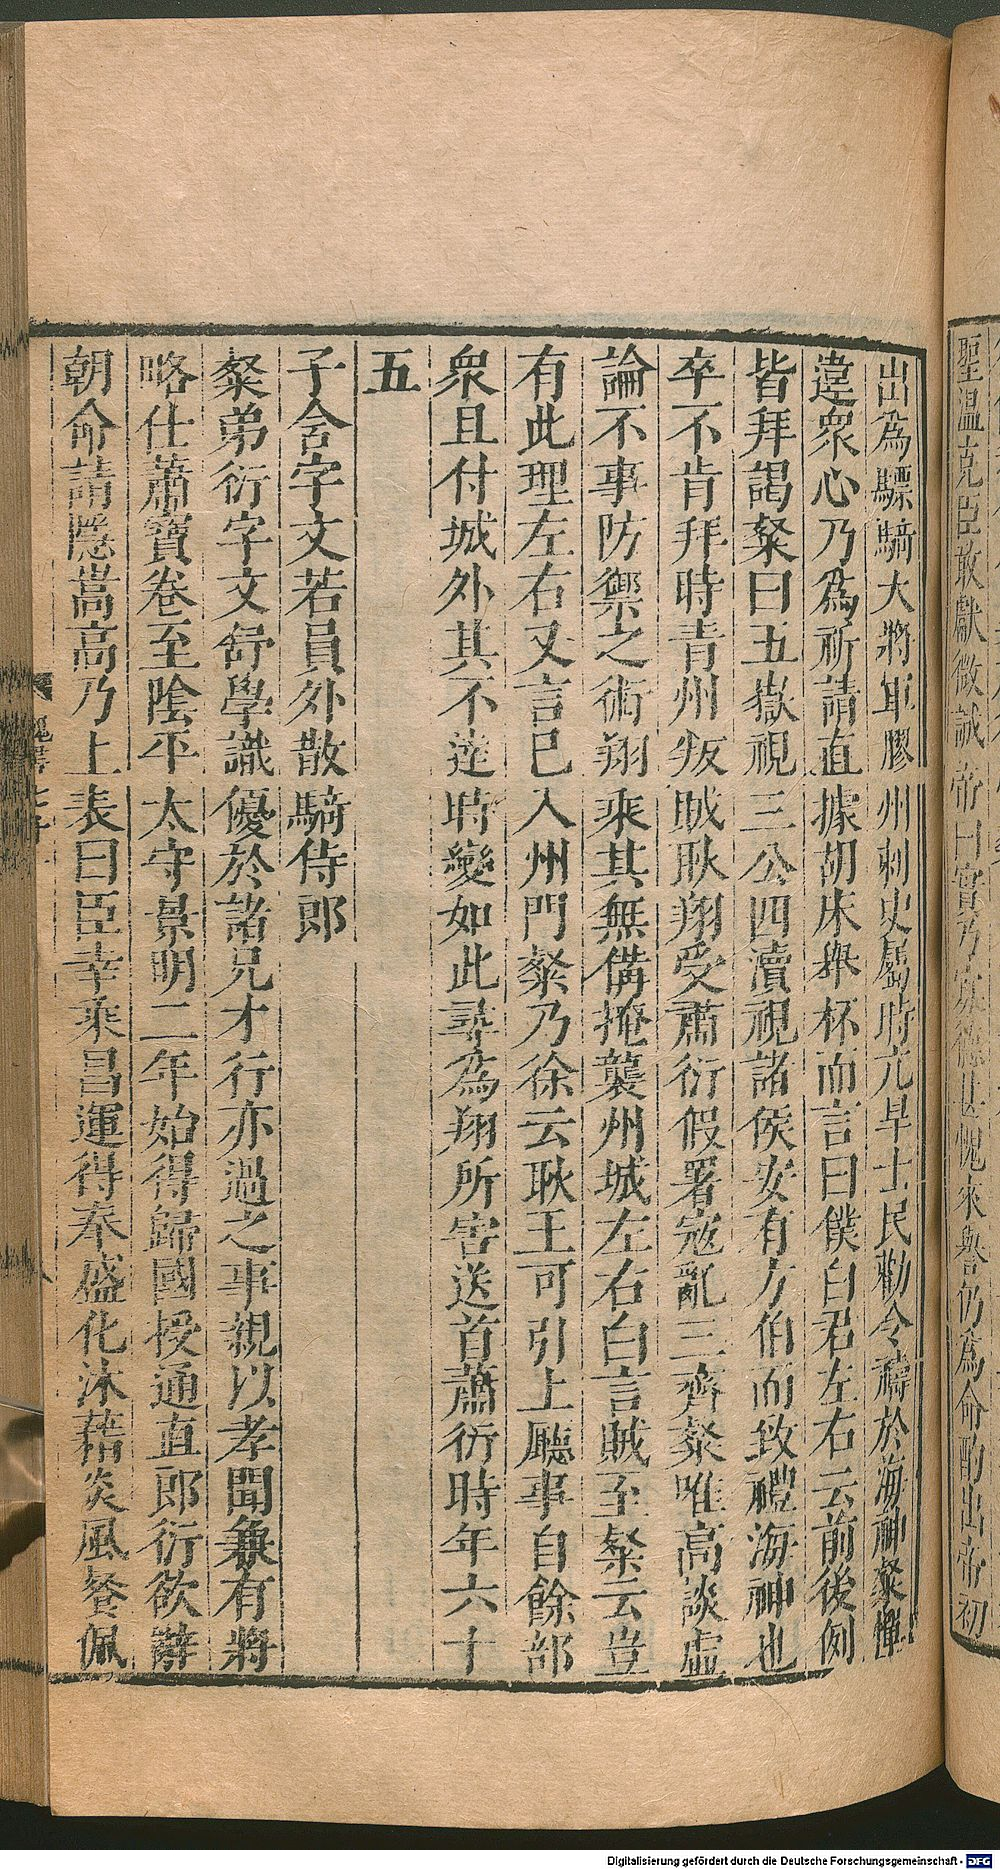 聖溫克臣敢獻微誠帝曰實乃寡德甚愧來譽仍為命酌出帝初
出為驃騎大將軍膠州刺史屬時亢旱士民勸令禱於海神粲憚
違眾心乃為祈請直據胡床舉杯而言曰僕白君左右云前後例
皆拜謁粲曰五嶽視三公四瀆視諸侯安有方伯而致禮海神也
卒不肯拜時青州叛賊耿翔受蕭衍假署寇亂三齊粲唯高談虛
論不事防禦之術翔乘其無備掩襲州城左右白言賊至粲云豈
有此理左右又言已入州門粲乃徐云耿王可引上廳事自餘部
眾且付城外其不達時變如此尋為翔所害送首蕭衍時年六十
五
子舍字文若員外散騎侍郎
粲弟衍字文舒學識優於諸兄才行亦過之事親以孝聞兼有將
略仕蕭寶卷至陰平太守景明二年始得歸國授通直郎衍欲辭
朝命請隱嵩高乃上表曰臣幸乘昌運得奉盛化沐藉炎風餐佩
Digitalisierung gefördert durch die Deutsche Forschungsgemeinschaft - DFG